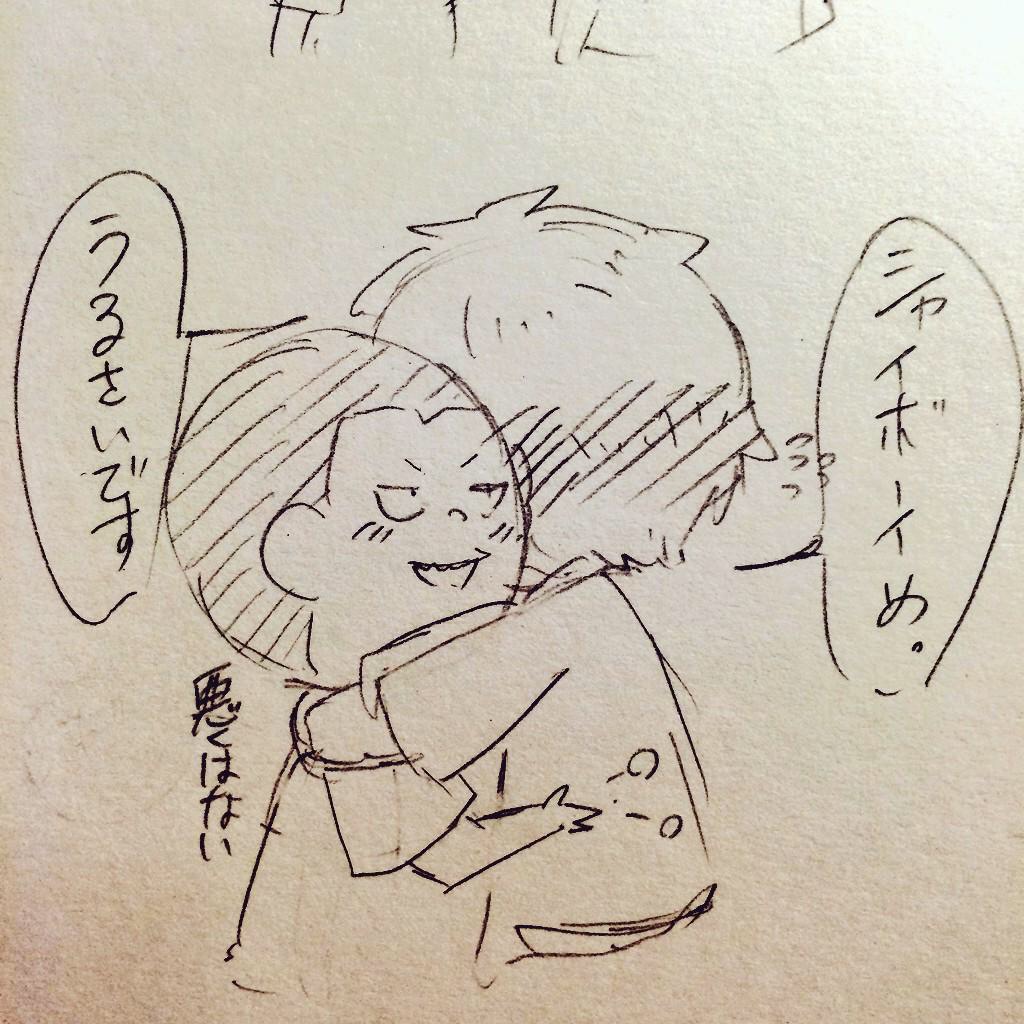 シャイボーイめ。
うるさいです
悪くはない